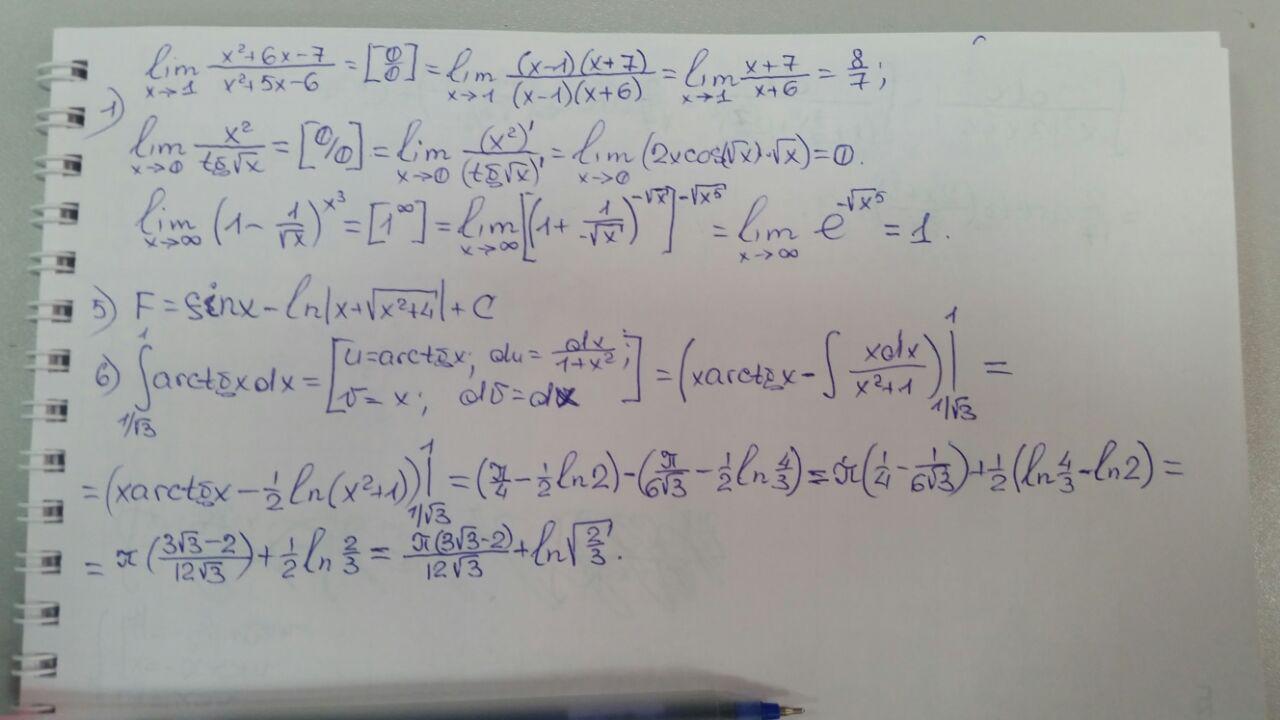 1) lim x→1 (x²+6x-7)/(x²+5x-6) = [0/0] = lim x→1 ((x-1)(x+7))/((x-1)(x+6)) = lim x→1 (x+7)/(x+6) = 8/7;
lim x→0 x²/tg√x = [0/0] = lim x→0 (x²)'/(tg√x)' = lim x→0 (2xcos(√x)·√x) = 0.
lim x→∞ (1 - 1/√x)^x³ = [1^∞] = lim x→∞ [(1 + 1/-√x)^-√x]^-√x⁵ = lim x→∞ e^-√x⁵ = 1.
5) F = sinx - ln|x+√x²+4| + C
6) ∫ 1/√3 1 arctgxdx = [u=arctgx; du = dx/(1+x²); v = x; dv = dx] = (xarctgx - ∫ xdx/(x²+1))| 1/√3 1 =
= (xarctgx - 1/2 ln(x²+1))| 1/√3 1 = (π/4 - 1/2 ln2) - (π/6√3 - 1/2 ln 4/3) = π(1/4 - 1/6√3) + 1/2 (ln 4/3 - ln2) =
= π((3√3-2)/12√3) + 1/2 ln 2/3 = π(3√3-2)/12√3 + ln√2/3.